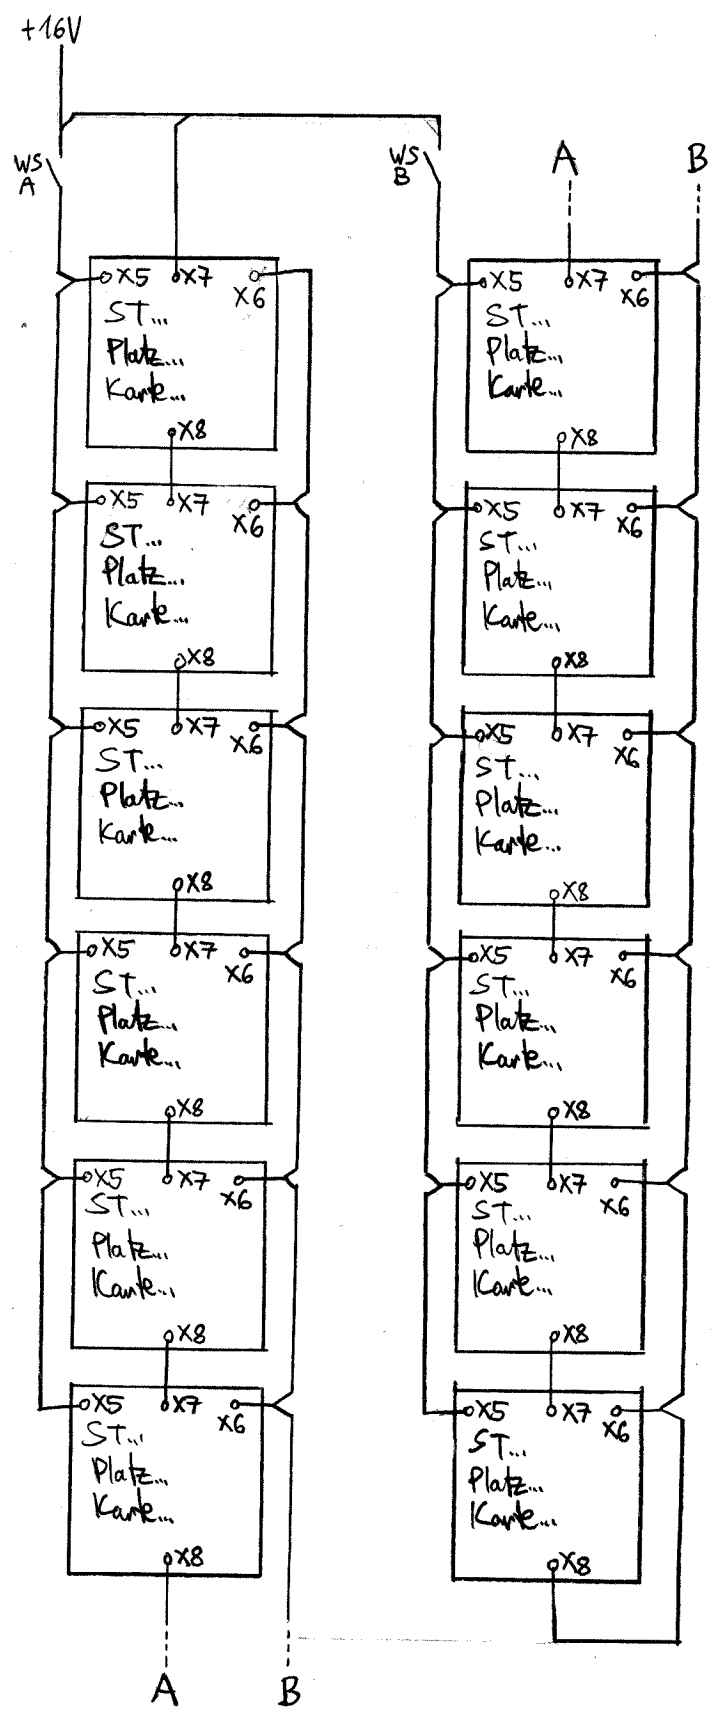 +16V
WS
A
X5 X7 X6
ST...
Platz...
Karte...
X8
X5 X7 X6
ST...
Platz...
Karte...
X8
X5 X7 X6
ST...
Platz...
Karte...
X8
X5 X7 X6
ST...
Platz...
Karte...
X8
X5 X7 X6
ST...
Platz...
Karte...
X8
X5 X7 X6
ST...
Platz...
Karte...
X8
A B
WS
B
A B
X5 X7 X6
ST...
Platz...
Karte...
X8
X5 X7 X6
ST...
Platz...
Karte...
X8
X5 X7 X6
ST...
Platz...
Karte...
X8
X5 X7 X6
ST...
Platz...
Karte...
X8
X5 X7 X6
ST...
Platz...
Karte...
X8
X5 X7 X6
ST...
Platz...
Karte...
X8